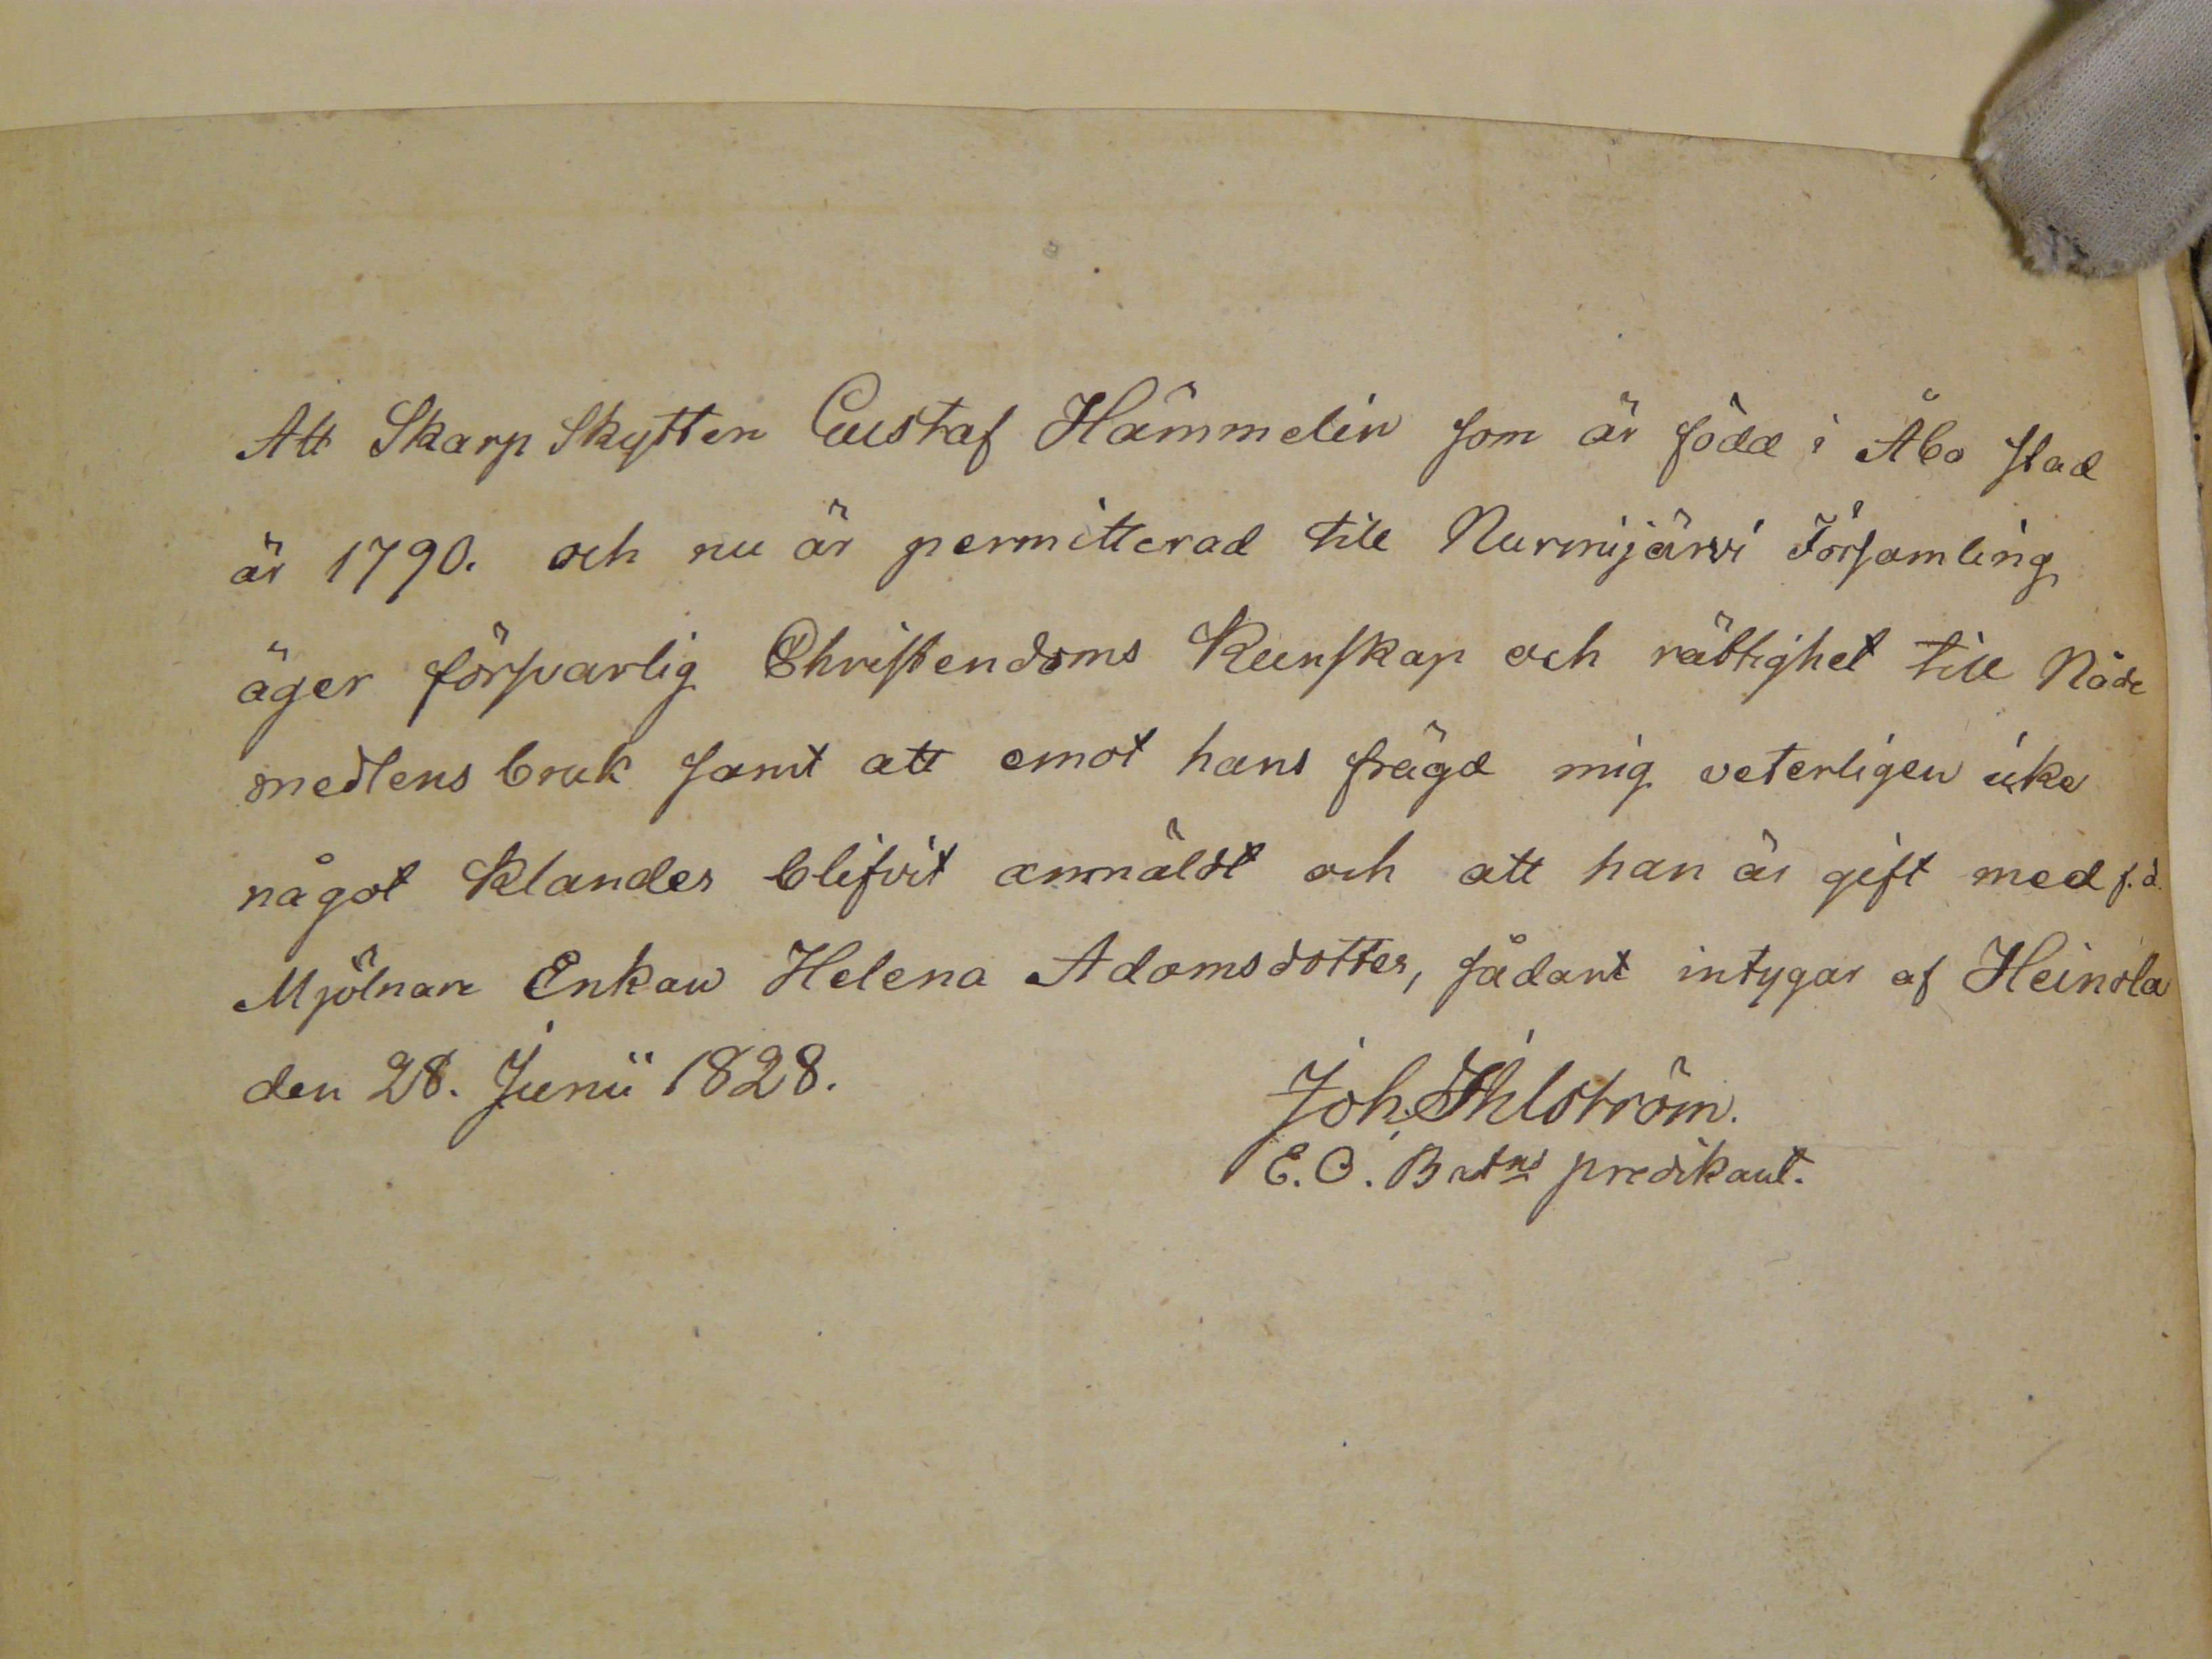 Att Skarp Skytten Gustaf Hämmelin som är född i Åbo stad
år 1790. och nu är permitterad till Nurmijärvi Församling
äger försvarlig Christendoms Kunskap och rättighet till Nåde
medlens bruk samt att emot hans frägd mig veterligen icke
något klander blifvit anmäldt och att han är gift med f.d.
Mjölnare Enkan Helena Adamsdotter, sådant intygar af Heinola
den 28. Junii 1828.
Joh. Ihlström.
E.O. Batns predikant.